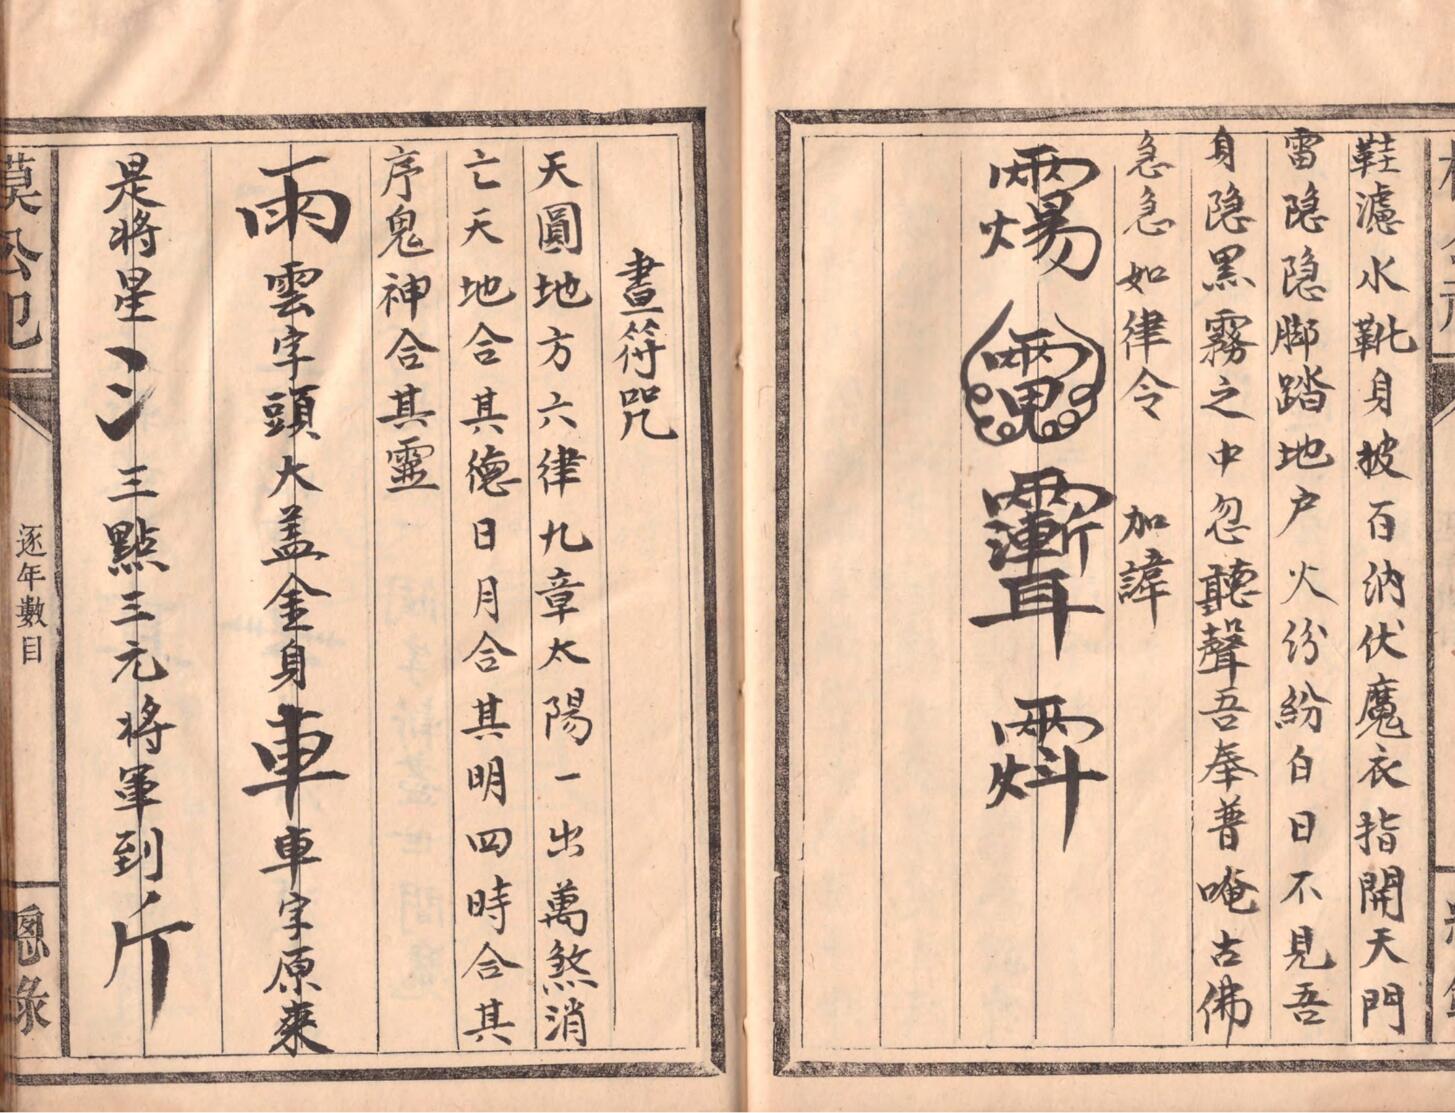 鞋濾水靴身披百汭伏魔衣指開天門
雷隐隐脚踏地户火份紛白日不見吾
身隐黑霧之中忽聽聲吾奉普唵古佛
急急如律令 加諱
晝符咒
天圓地方六律九章太陽一出萬煞消
亡天地合其德日月合其明四時合其
序鬼神合其靈
雨雲字頭大盖金身車車字原來
是將星氵三點三元將軍到斤
逐年數目
總錄